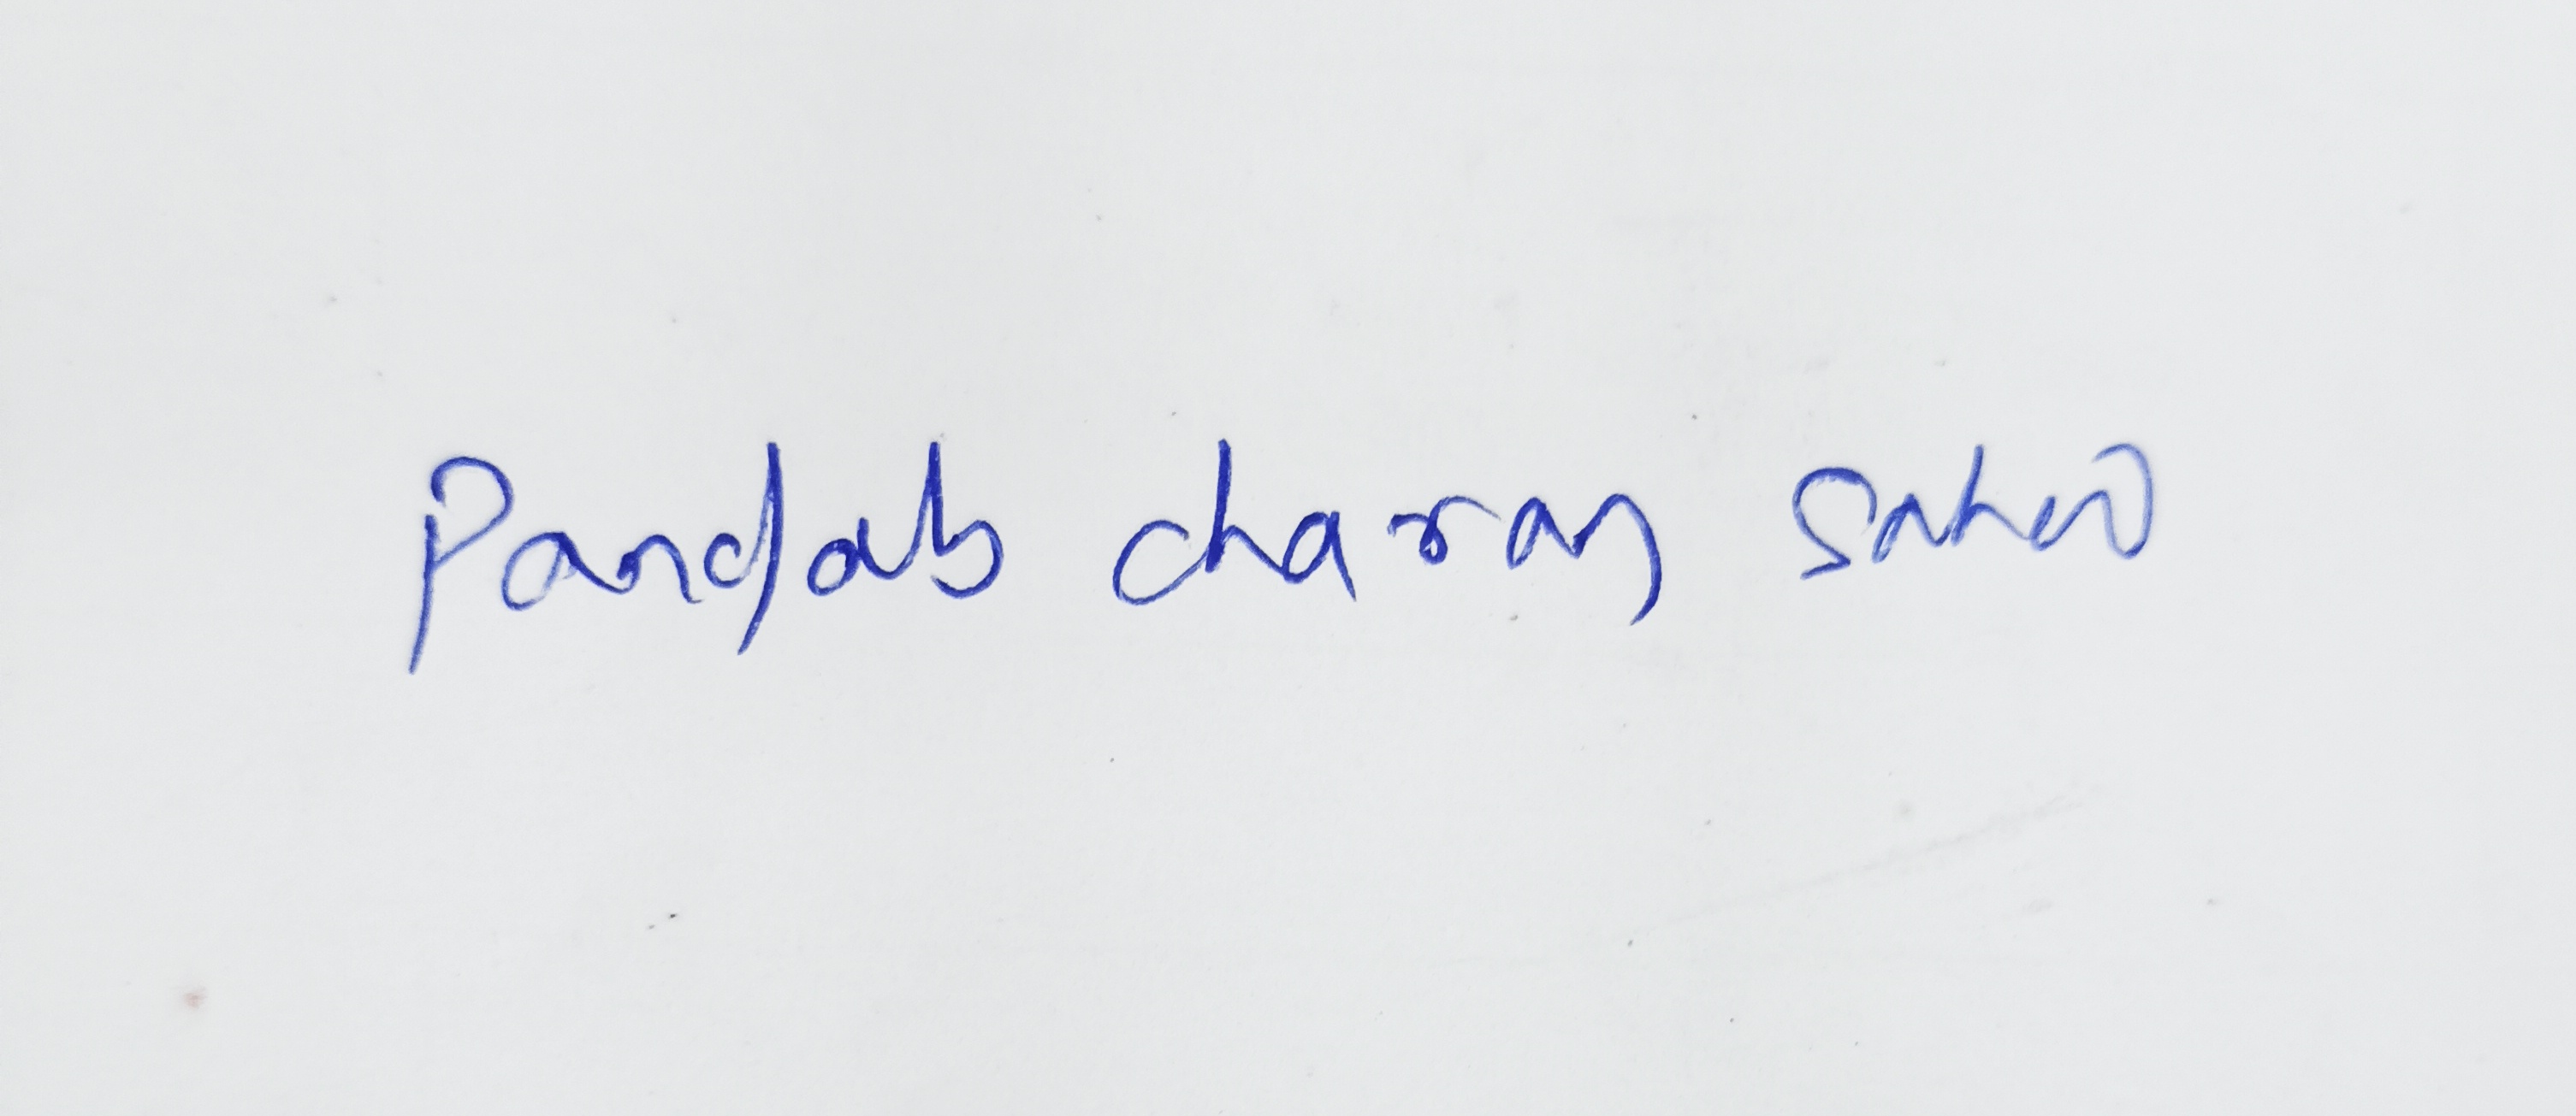 Pandab charan sahoo